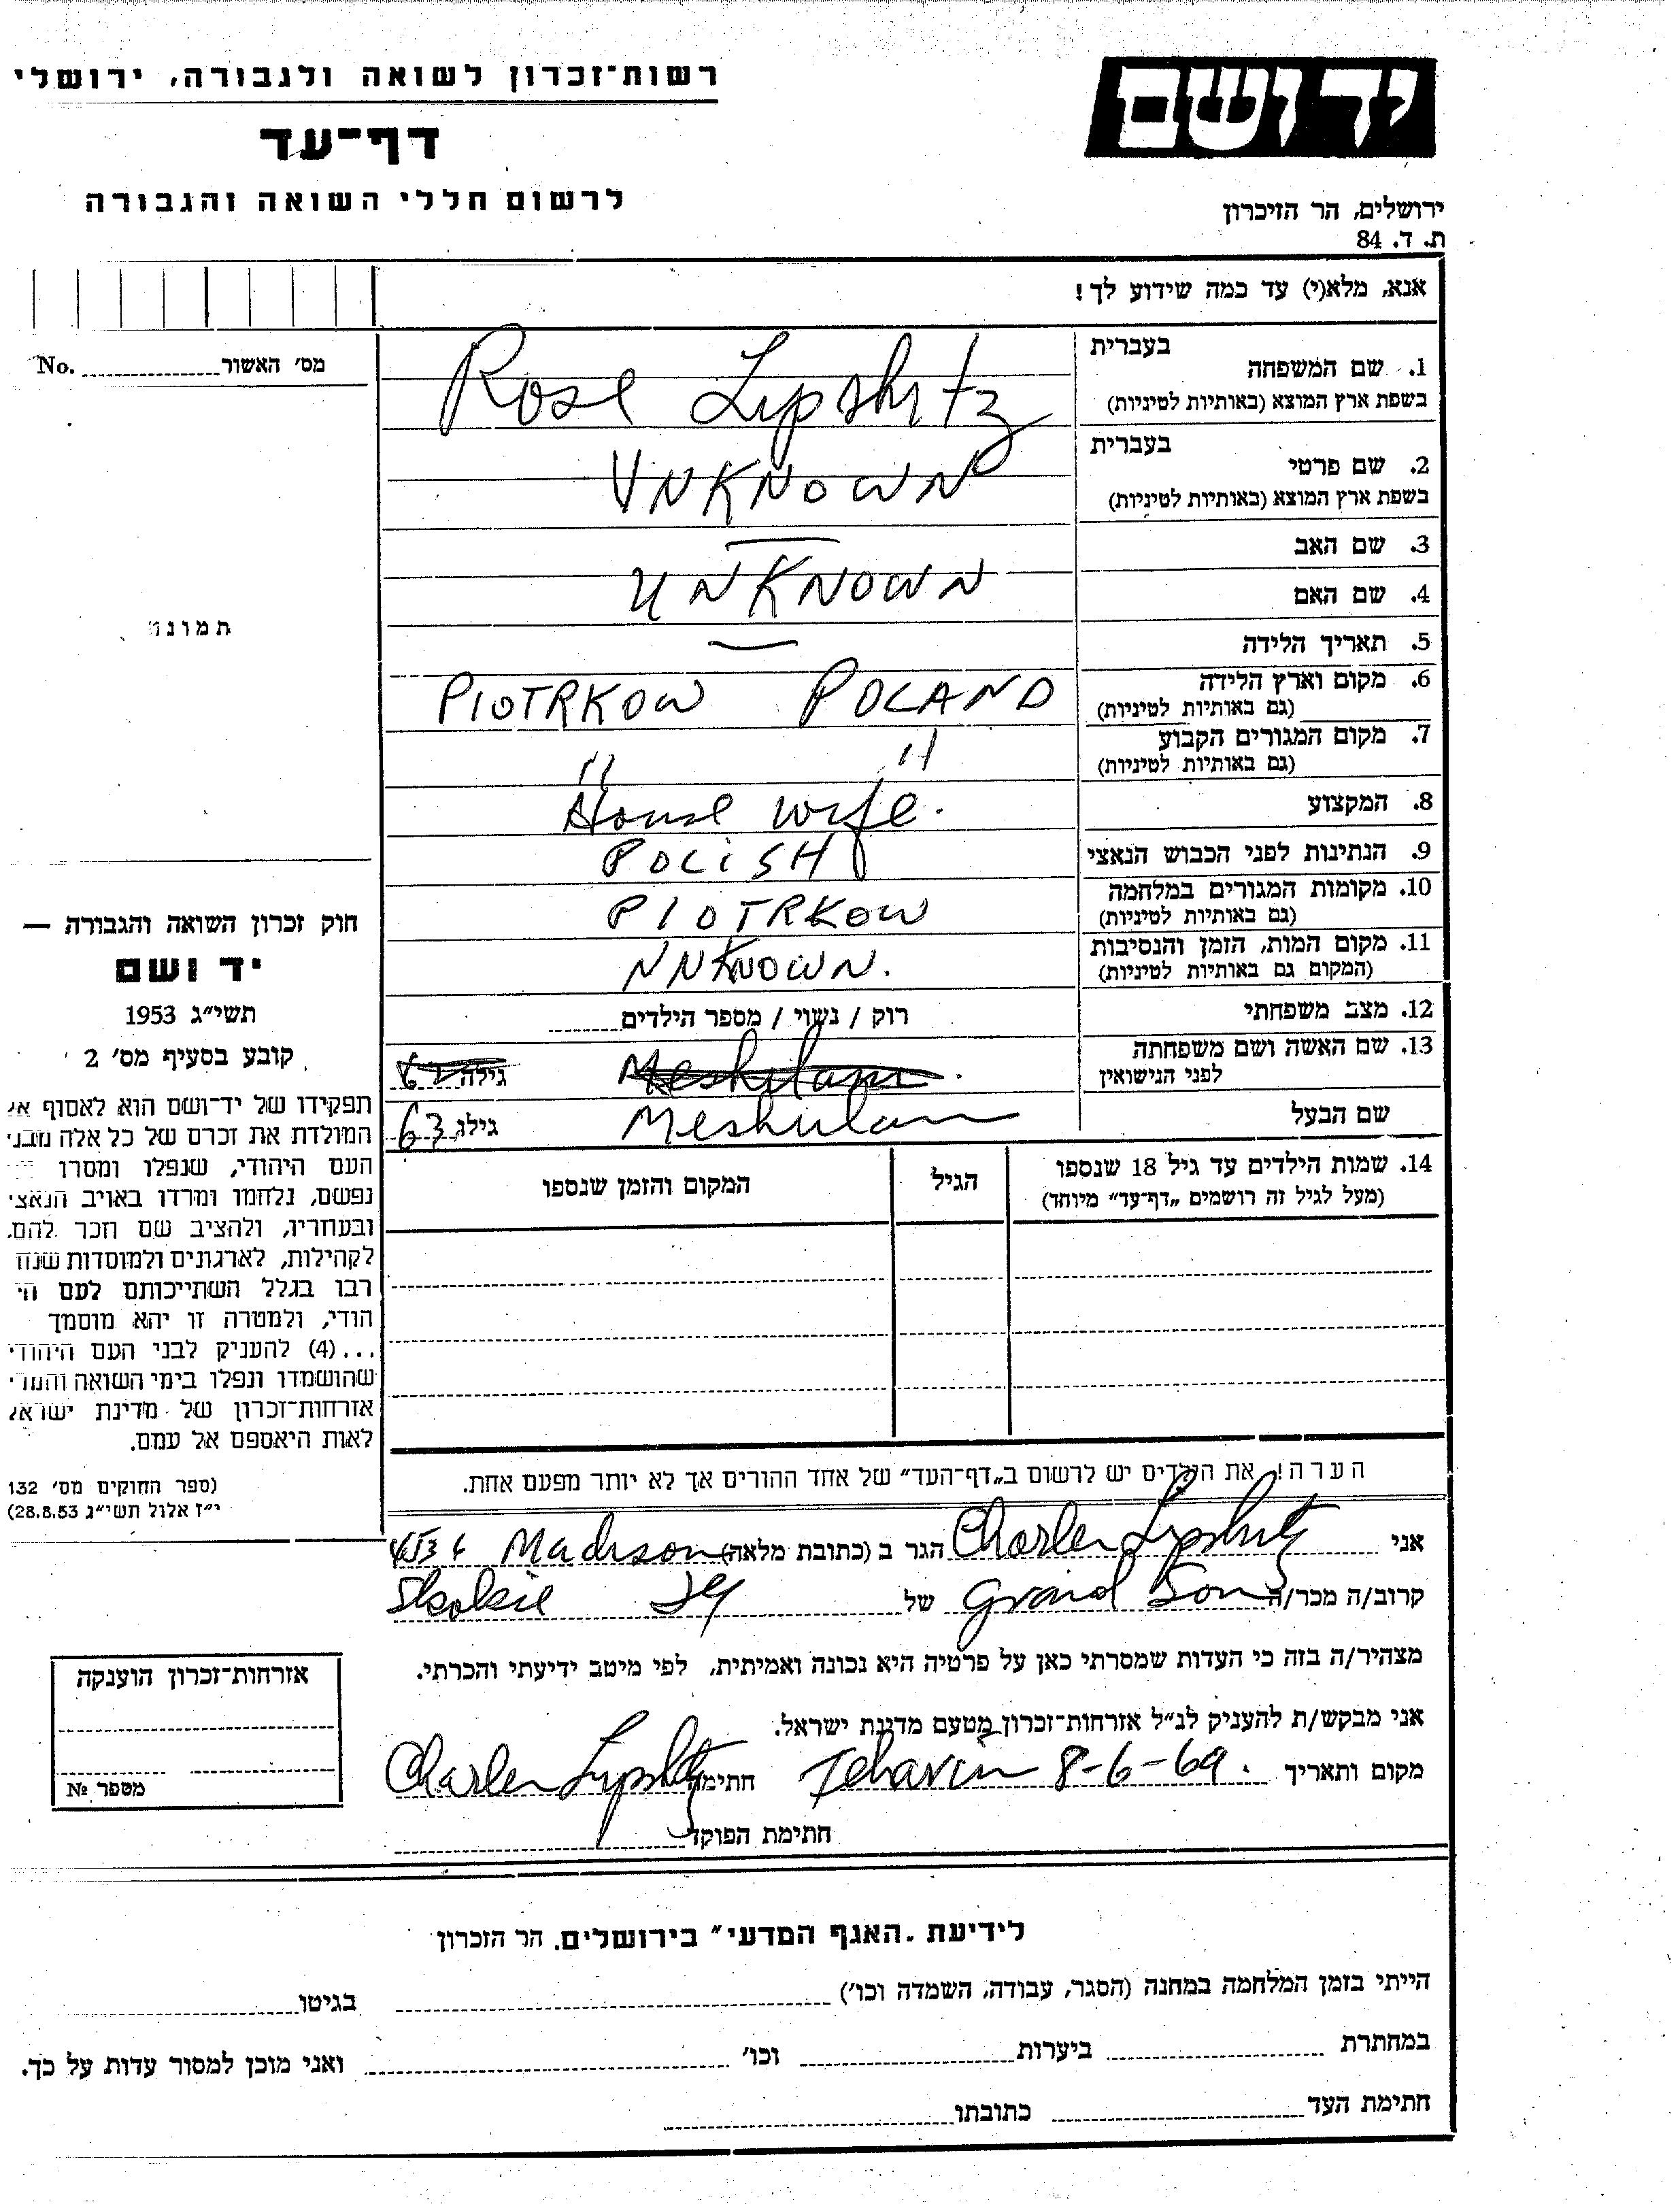 רשות־זכרון לשואה ולגבורה, ירושלי
דף־עד
לרשום חללי השואה והגבורה
יד ושם
ירושלים, הר הזיכרון
ת. ד. 84
אנא, מלא(י) עד כמה שידוע לך!
מס׳ האשור No.
תמונה
1. שם המשפחה בעברית
בשפת ארץ המוצא (באותיות לטיניות)
Rose Lipshitz
2. שם פרטי בעברית
בשפת ארץ המוצא (באותיות לטיניות)
UNKNOWN
3. שם האב
4. שם האם
UNKNOWN
5. תאריך הלידה
6. מקום וארץ הלידה
(גם באותיות לטיניות)
PIOTRKOW POLAND
7. מקום המגורים הקבוע
(גם באותיות לטיניות)
" "
8. המקצוע
House wife.
9. הנתינות לפני הכבוש הנאצי
POLISH
10. מקומות המגורים במלחמה
(גם באותיות לטיניות)
PIOTRKOW
11. מקום המות, הזמן והנסיבות
(המקום גם באותיות לטיניות)
NNKNOWN.
12. מצב משפחתי
רוק / נשוי / מספר הילדים
13. שם האשה ושם משפחתה
לפני הנישואין
Meshulam גילה
שם הבעל
Meshulam גילו 63
14. שמות הילדים עד גיל 18 שנספו
(מעל לגיל זה רושמים „דף־עד״ מיוחד)
הגיל
המקום והזמן שנספו
חוק זכרון השואה והגבורה —
יד ושם
תשי״ג 1953
קובע בסעיף מס׳ 2
תפקידו של יד־ושם הוא לאסוף אל
המולדת את זכרם של כל אלה מבני
העם היהודי, שנפלו ומסרו
נפשם, נלחמו ומרדו באויב הנאצי
ובעוזריו, ולהציב שם וזכר להם,
לקהילות, לארגונים ולמוסדות שנח
רבו בגלל השתייכותם לעם הי
הודי, ולמטרה זו יהא מוסמך
...(4) להעניק לבני העם היהודי
שהושמדו ונפלו בימי השואה והמרי
אזרחות־זכרון של מדינת ישראל
לאות היאספם אל עמם.
(ספר החוקים מס׳ 132
י״ז אלול תשי״ג 28.8.53)
הערה! את הילדים יש לרשום ב„דף־העד״ של אחד ההורים אך לא יותר מפעם אחת.
אני Charles Lipshutz הגר ב (כתובת מלאה) Madison
קרוב/ה מכר/ה Grand Son של Skokie Ill
מצהיר/ה בזה כי העדות שמסרתי כאן על פרטיה היא נכונה ואמיתית, לפי מיטב ידיעתי והכרתי.
אני מבקש/ת להעניק לנ״ל אזרחות־זכרון מטעם מדינת ישראל.
מקום ותאריך 8-6-69. חתימה Charles Lipshutz
חתימת הפוקד
אזרחות־זכרון הוענקה
מספר №
לידיעת „האגף המדעי״ בירושלים, הר הזכרון
הייתי בזמן המלחמה במחנה (הסגר, עבודה, השמדה וכו׳) בגיטו
במחתרת ביערות וכו׳ ואני מוכן למסור עדות על כך.
חתימת העד כתובתו